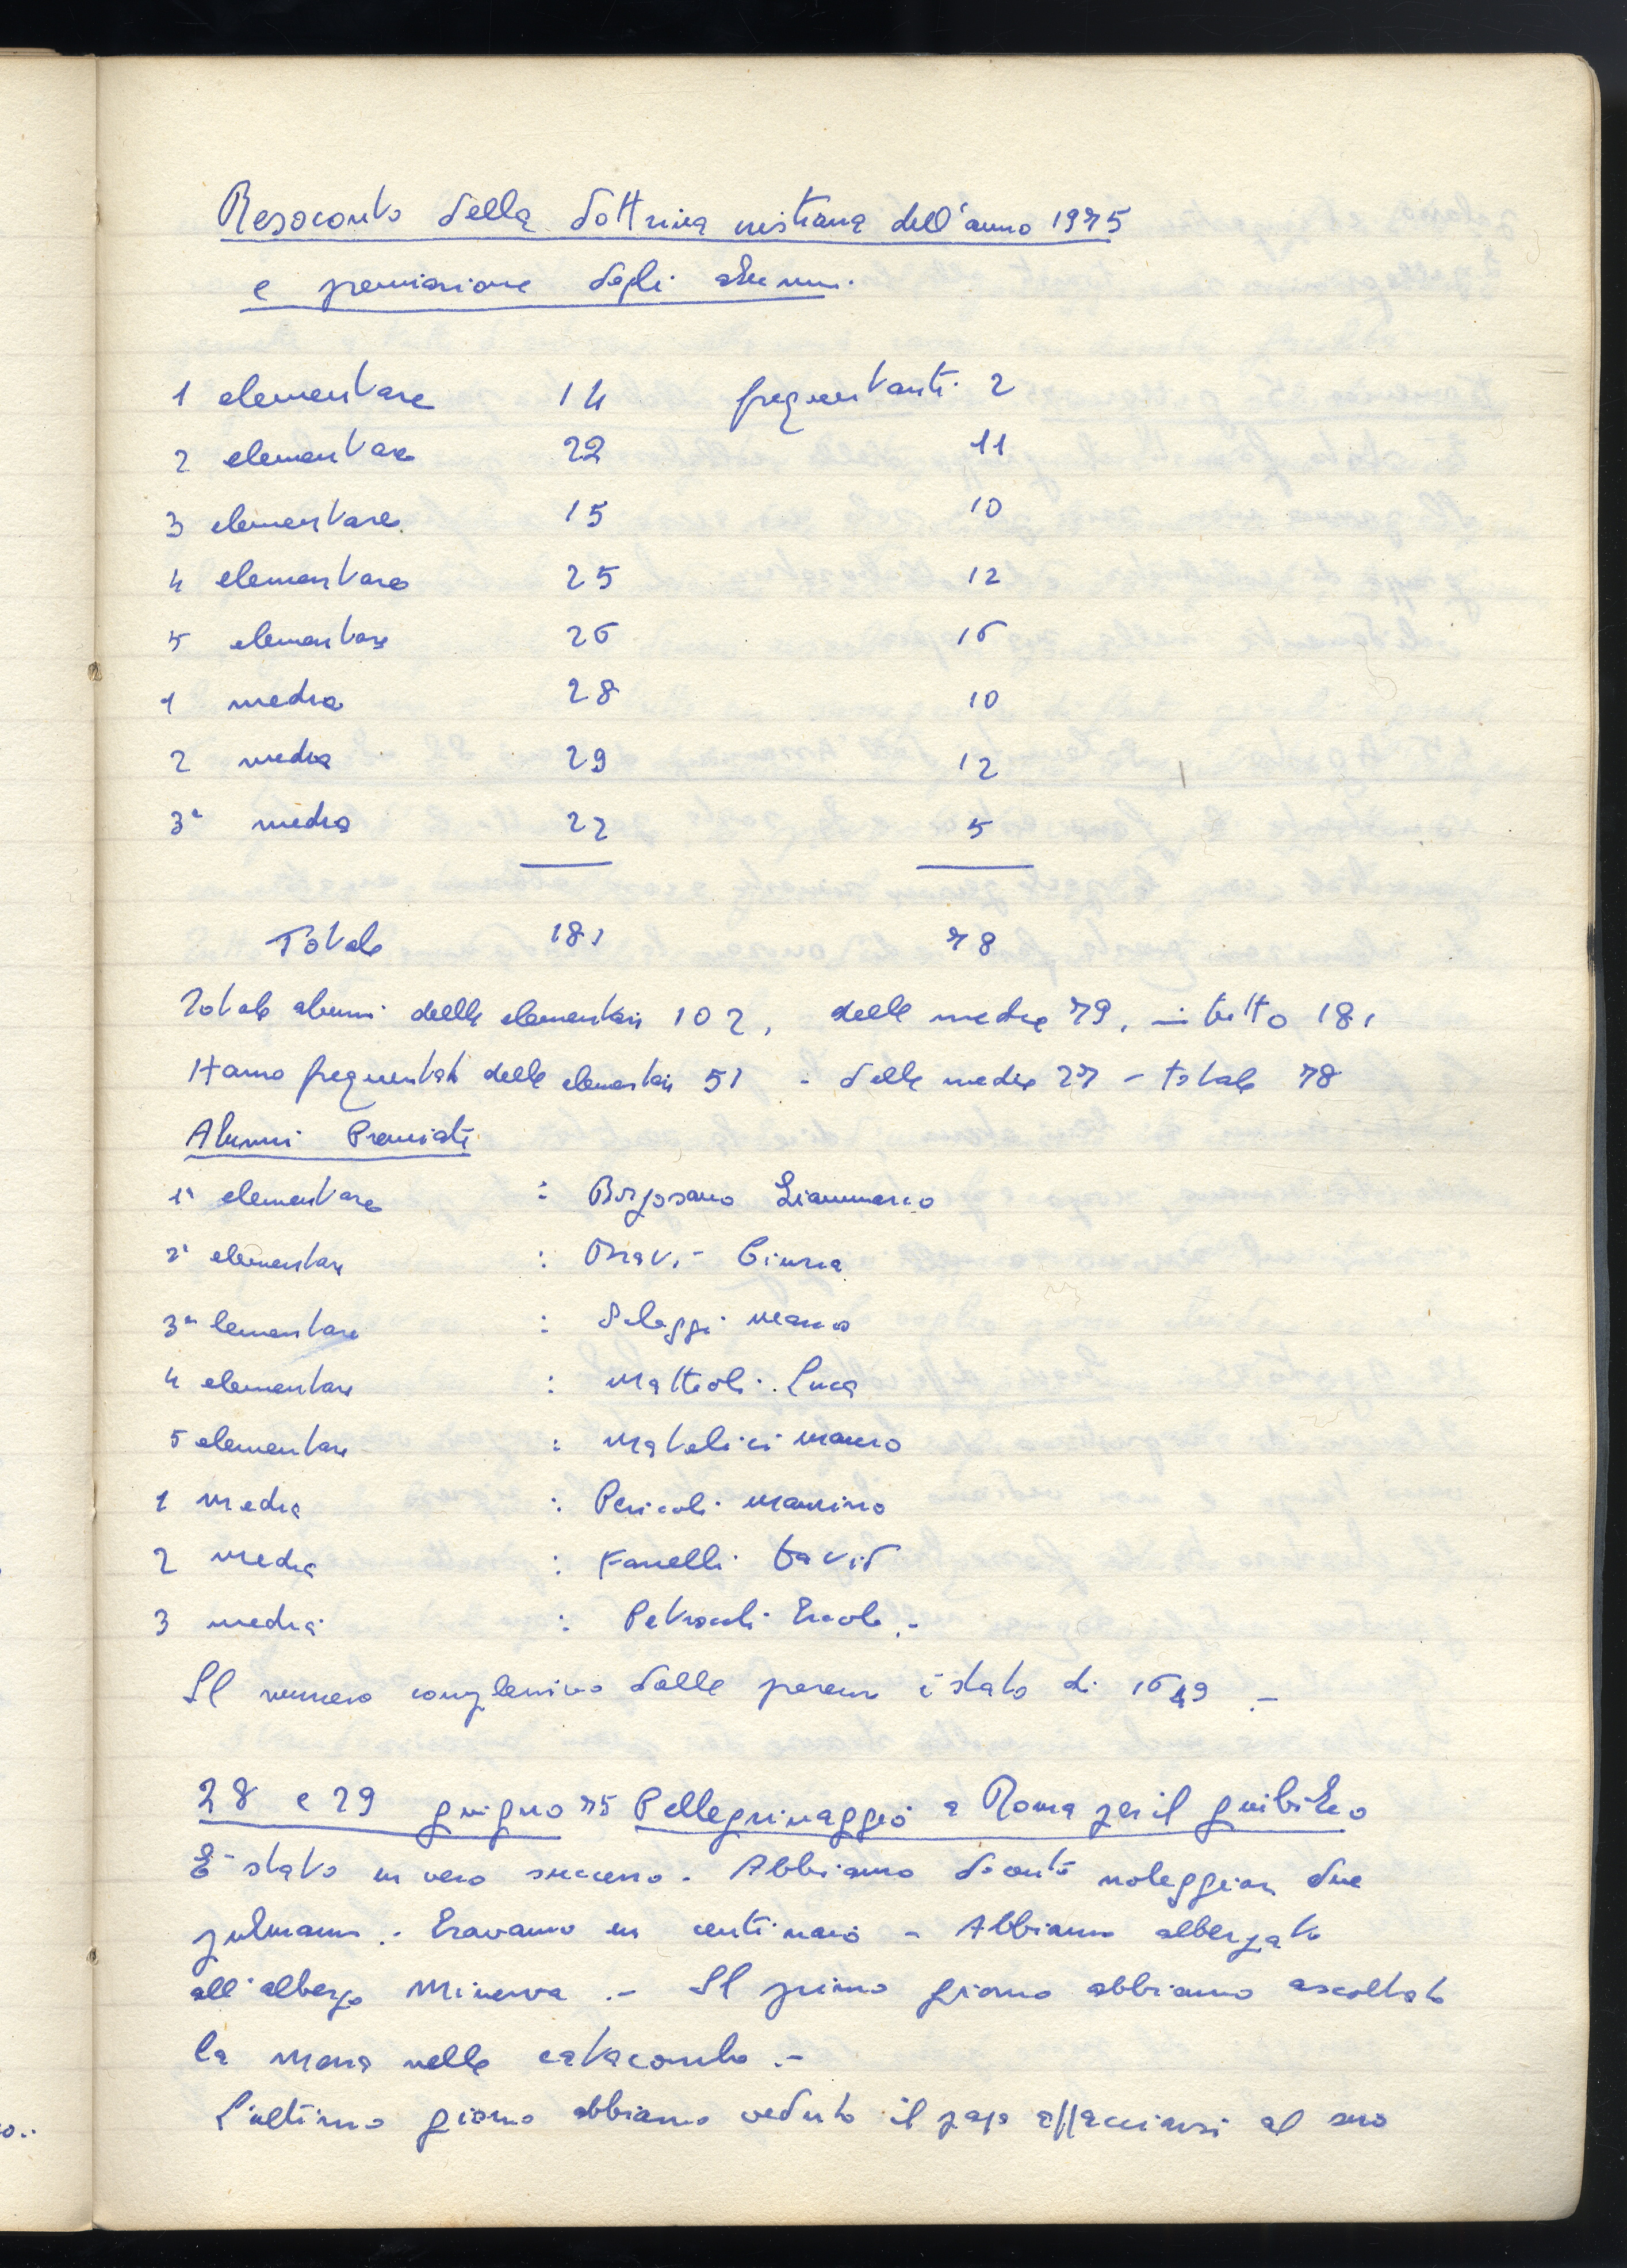 Resoconto della dottrina cristiana dell'anno 1975
e premiazione degli alunni.
1 elementare 14 frequentanti 2
2 elementare 22 11
3 elementare 15 10
4 elementare 25 12
5 elementare 26 16
1 media 28 10
2 media 29 12
3ª media 22 5
Totale 181 78
Totale alunni delle elementari 102, delle medie 79, in tutto 181
Hanno frequentato delle elementari 51 - delle medie 27 - totale 78
Alunni Premiati
1ª elementare : Gianmarco
2ª elementare :
3ª lementare : Marco
4 elementare : Mattioli Luca
5 elementare : Matelici Mauro
1 Media : Pericoli Massimo
2 Media : Fanelli David
3 media : Ercole.-
Il numero complessivo delle presenze è stato di 1649.-
28 e 29 giugno 75 Pellegrinaggio a Roma per il giubileo
E' stato un vero successo. Abbiamo dovuto noleggiare due
pulmann.- Eravamo un centinaio - Abbiamo albergato
all'albergo Minerva.- Il primo giorno abbiamo ascoltato
la Messa nelle catacombe.-
L'ultimo giorno abbiamo veduto il papa affacciarsi al suo